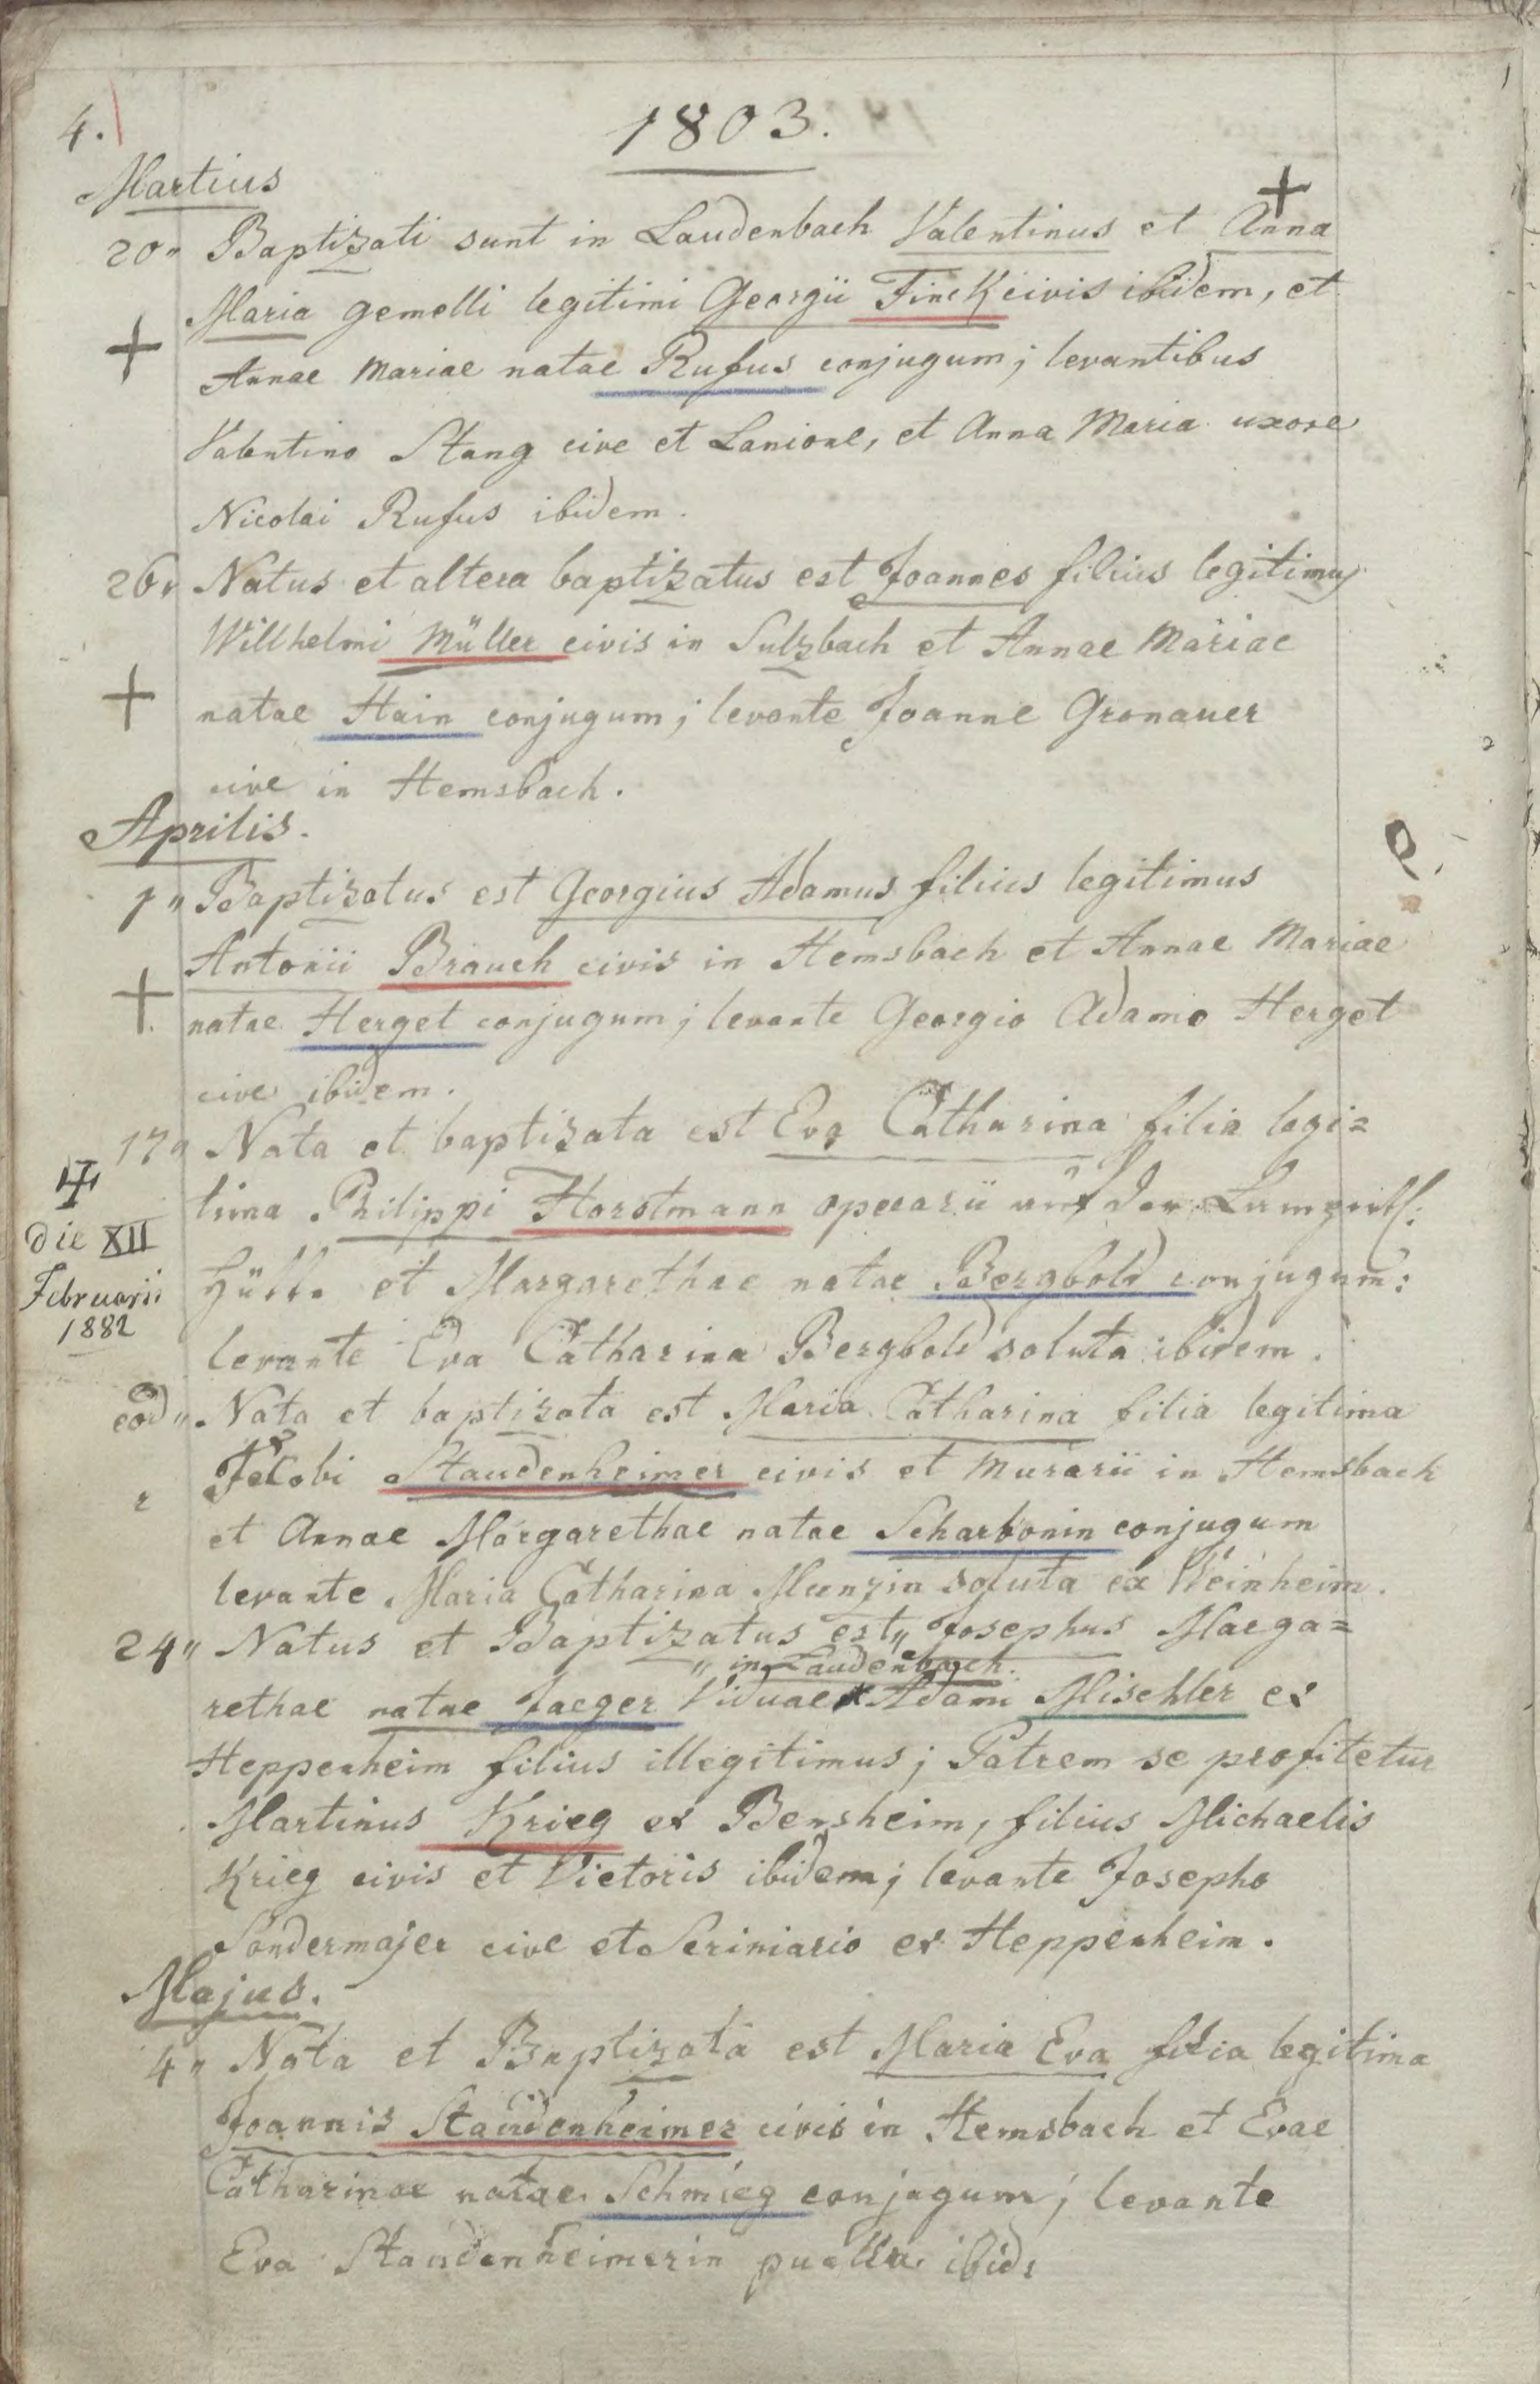 4.
1803.
Martius
20" Baptizati sunt in Laudenbach Valentinus et Anna
Maria gemelli legitimi Georgii Finck civis ibidem, et
Annae Mariae natae Rufus conjugum; levantibus
Valentino Stang cive et Lanione, et Anna Maria uxore
Nicolai Rufus ibidem.
26" Natus et altera baptizatus est Joannes filius legitimus
Willhelmi Müller civis in Sulzbach et Annae Mariae
natae Hain conjugum; levante Joanne Gronauer
cive in Hemsbach.
Aprilis.
1" Baptizatus est Georgius Adamus filius legitimus
Antonii Brauch civis in Hemsbach et Annae Mariae
natae Herget conjugum; levante Georgio Adamo Herget
cive ibidem.
17" Nata et baptizata est Eva Catharina filia legi=
tima Philippi Horstmann operarii auf der
Hütte et Margarethae natae Bergbold conjugum:
levante Eva Catharina Bergbold soluta ibidem.
die XII
Februarii
1882
eod" Nata et baptizata est Maria Catharina filia legitima
Jacobi Staudenheimer civis et Murarii in Hemsbach
et Annae Margarethae natae Scharbonin conjugum
levante Maria Catharina Menzin soluta ex Weinheim.
24" Natus et Baptizatus est" Josephus Marga=
" in Laudenbach.
rethae natae Jaeger Viduae Adami Mischler ex
Heppenheim filius illegitimus; Patrem se profitetur
Martinus Krieg ex Bensheim, filius Michaelis
Krieg civis et Vietoris ibidem; levante Josepho
Sondermajer cive et Scriniario ex Heppenheim.
Majus.
4" Nata et Baptizata est Maria Eva filia legitima
Joannis Staudenheimer civis in Hemsbach et Evae
Catharinae natae Schmieg conjugum; levante
Eva Staudenheimerin puella ibid: